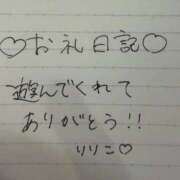 ♡お礼日記♡
遊んでくれて
ありがとう!!
りりこ♡